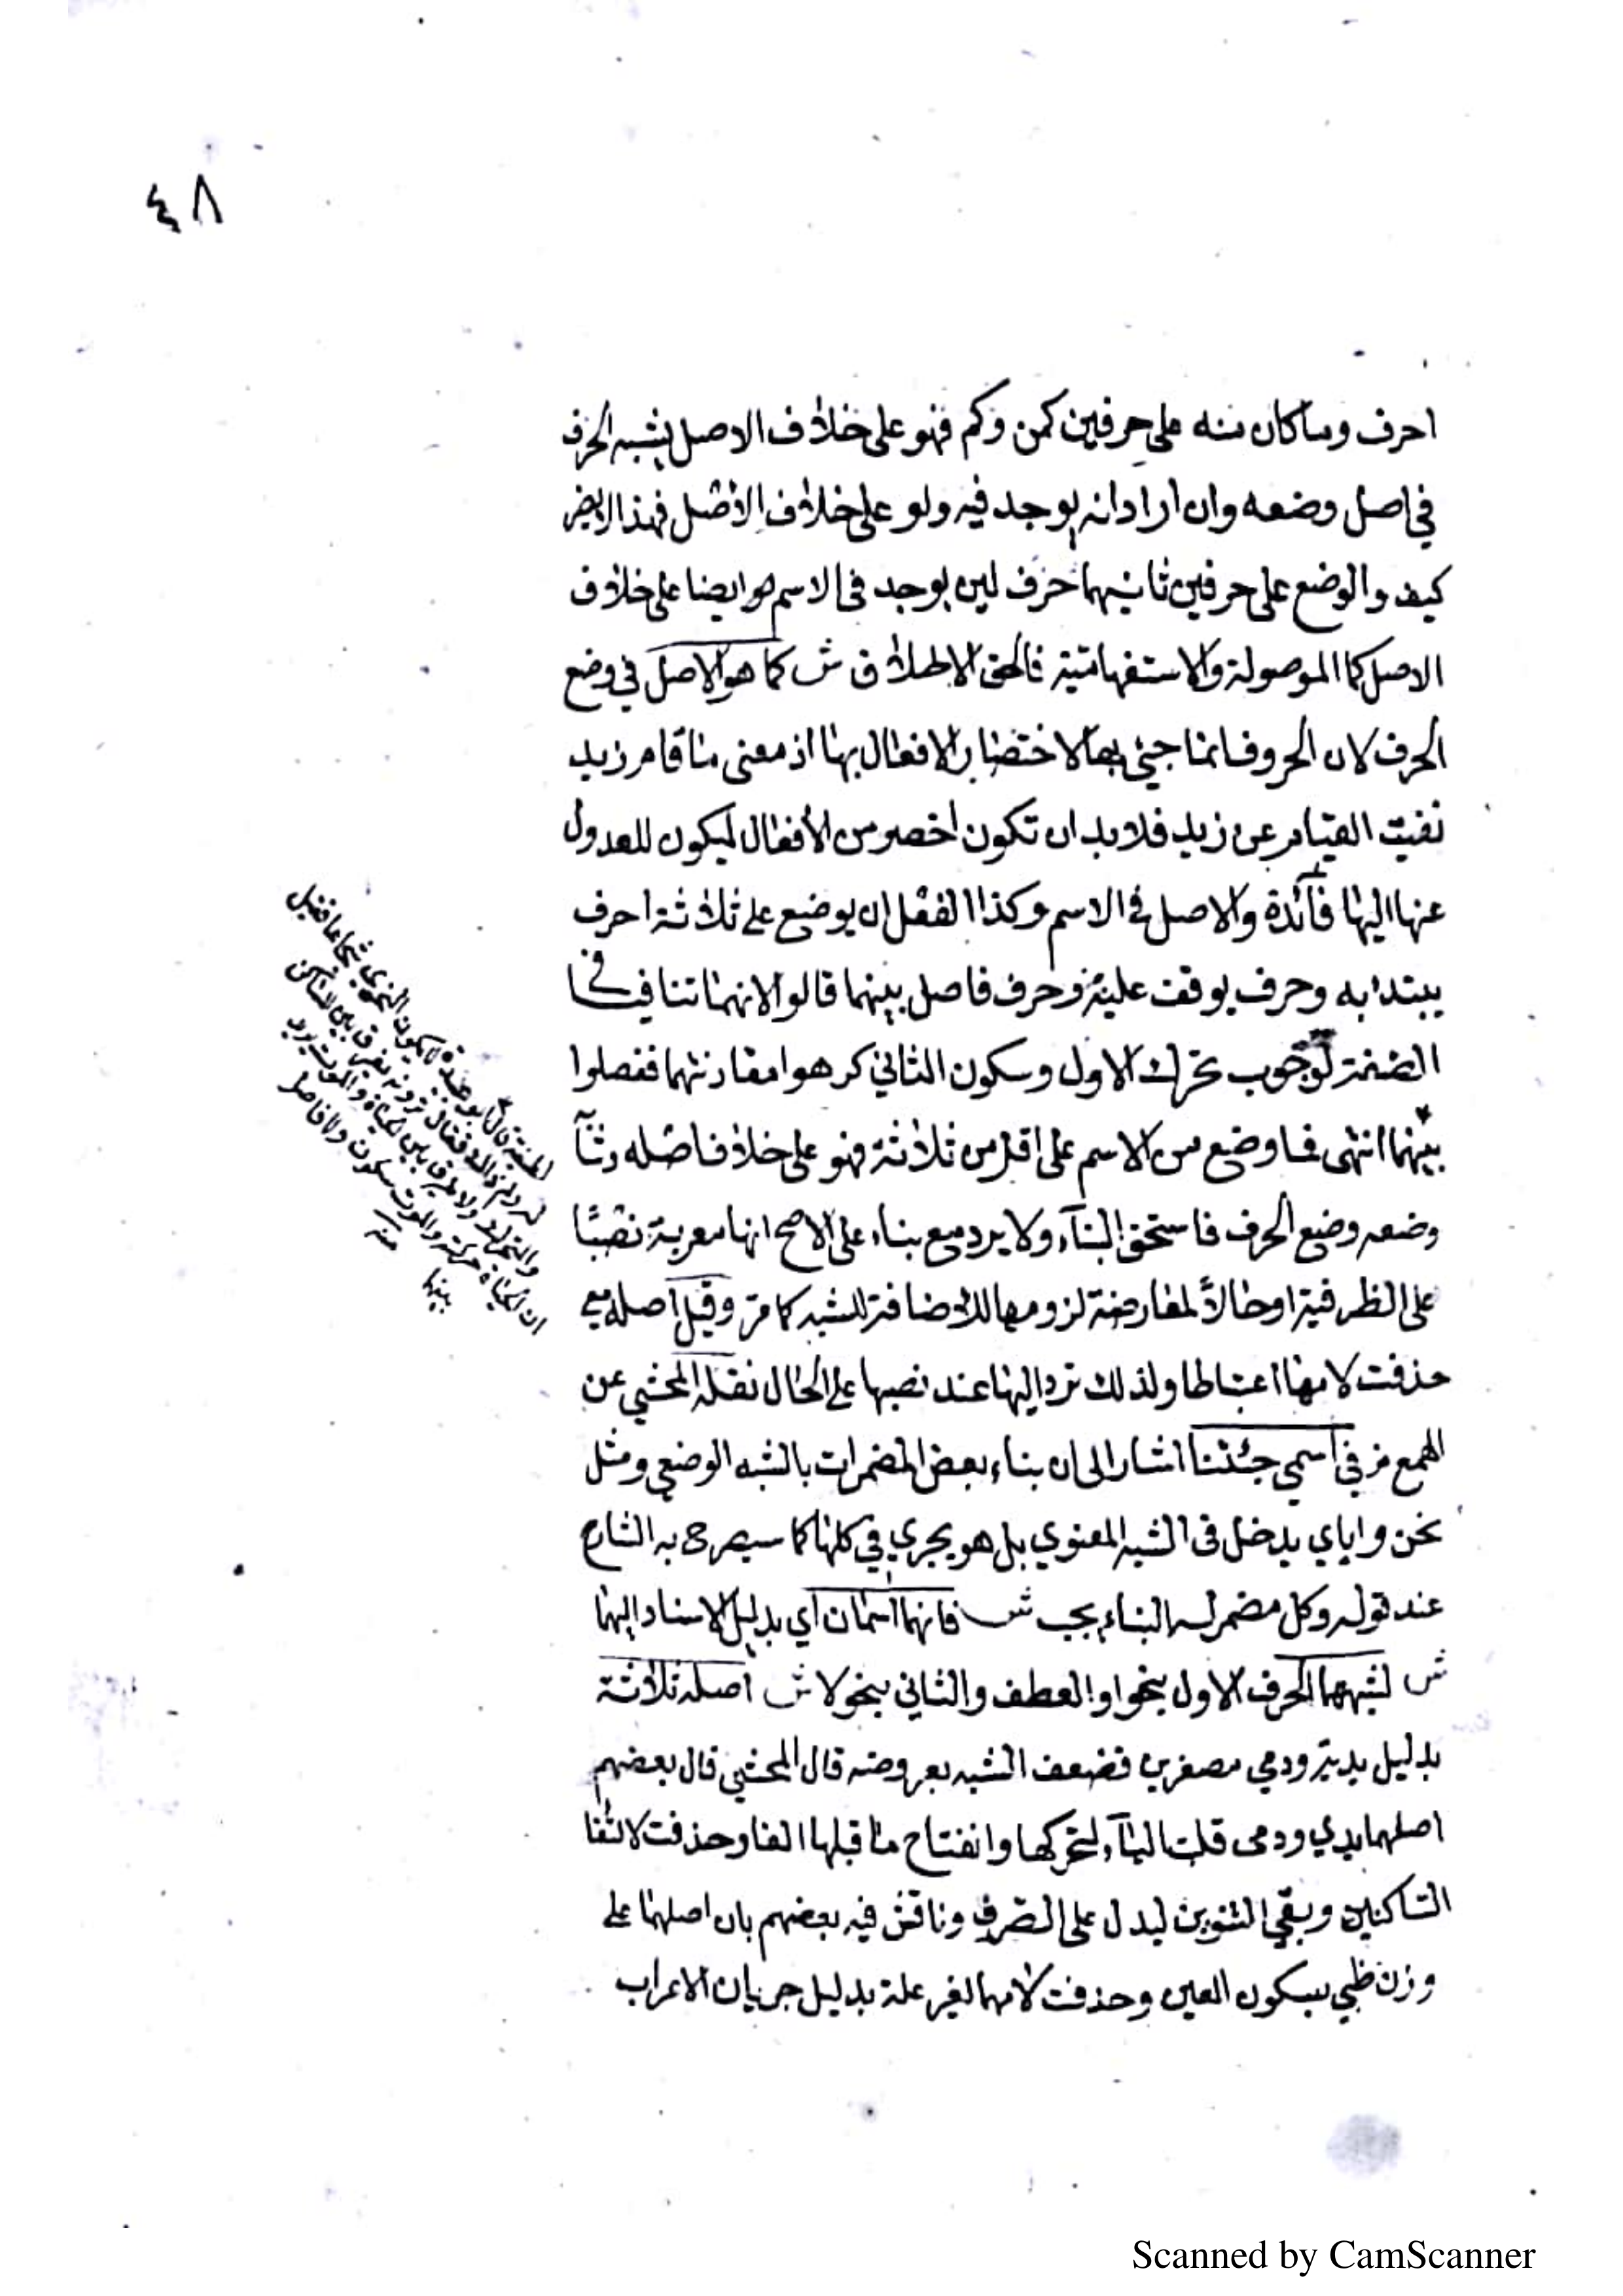 ٤٨
احرف وما كان منه على حرفين كمن وكم فهو على خلاف الاصل يشبه الحرف
في اصل وضعه وان اراد انه يوجد فيه ولو على خلاف الاصل فهذا لا يضر
كيف والوضع على حرفين ثانيهما حرف لين يوجد فى الاسم هو ايضا على خلاف
الاصل كما الموصولة والاستفهامية فالحق الاطلاق ش كما هو الاصل في وضع
الحرف لان الحروف انما جيئ بها لاختصار الافعال بها اذ معنى ما قام زيد
نفيت القيام عن زيد فلا بد ان تكون اخصر من الافعال ليكون للعدول
عنها اليها فائدة والاصل في الاسم وكذا الفعل ان يوضع على ثلاثة احرف
يبتدا به وحرف يوقف عليه وحرف فاصل بينهما قالوا لانهما تنافيا في
الصفة لوجوب تحرك الاول وسكون الثاني كرهوا مقارنتهما ففصلوا
بينهما انتهى فما وضع من الاسم على اقل من ثلاثة فهو على خلاف اصله وشآ
وضعه وضع الحرف فاستحق البنآء ولا يرد مع بناء على الاصح انها معربة نصبًا
على الظرفية او حالاً لمعارضة لزومها للاضافة للشبه كما مر وقيل اصله معي
حذفت لامها اعتباطا ولذلك ترد اليها عند نصبها على الحال نقله المحشي عن
الهمع مز في اسمي جئتنا اشار الى ان بناء بعض المضمرات بالشبه الوضعي ومثل
نحن واياي يدخل فى الشبه المعنوي بل هو يجري في كلها كما سيصرح به الشارح
عند قوله وكل مضمر له البناء يجب ش فانهما اسمان اي بدليل الاسناد اليهما
ش لشبههما الحرف الاول بنحو واو العطف والثاني بنحو لا ش اصله ثلاثة
بدليل يدية ودمي مصغرين فضعف الشبه بعروضه قال المحشي قال بعضهم
اصلهما يدي ودمى قلبت اليآء لتحركها وانفتاح ما قبلها الفا وحذفت لالتقا
الساكنين وبقي التنوين ليدل على الصرف وناقش فيه بعضهم بان اصلهما على
وزن ظبي بسكون العين وحذفت لامهما لغير علة بدليل جريان الاعراب
بينهما
منه
Scanned by CamScanner